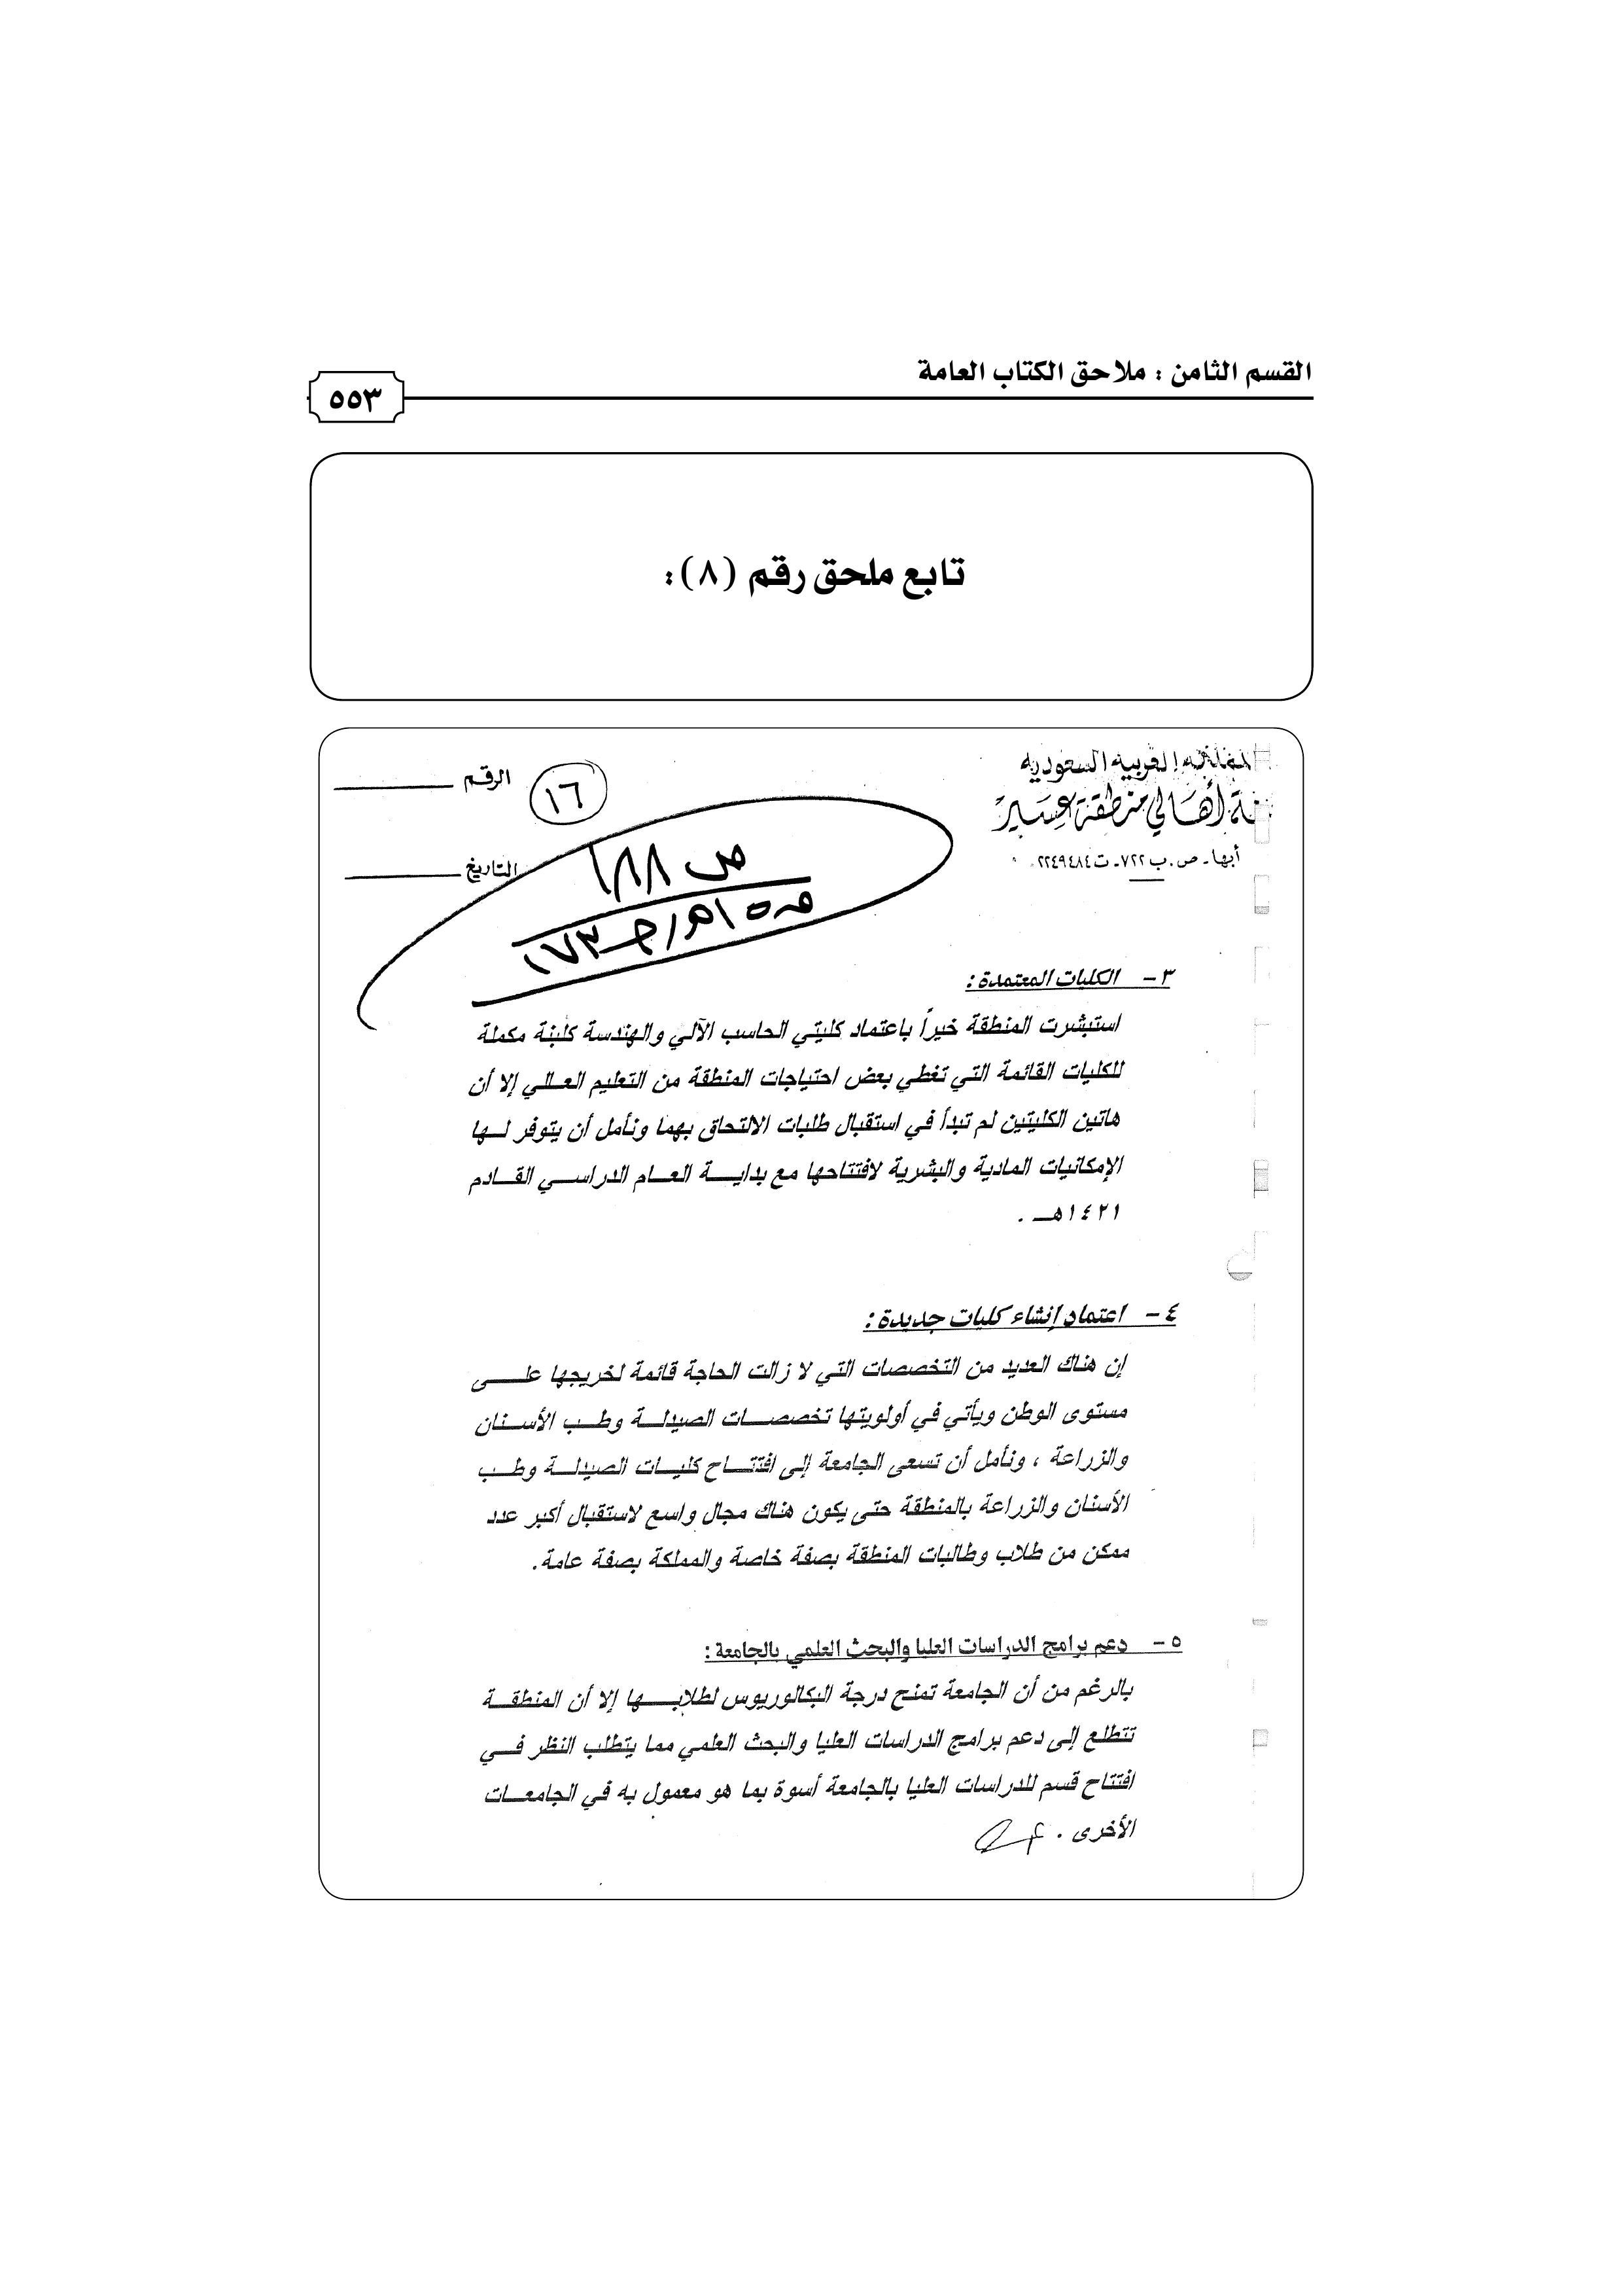 القسم الثامن : ملاحق الكتاب العامة
٥٥٣
تابع ملحق رقم (٨):
العربية السعودية
أهالي منطقة عسير
أبها ـ ص . ب ٧٢٢ ـ ت ٢٢٤٩٤٨٤
الرقم
١٦
التاريخ
ص ١٨٨
٣ – الكليات المعتمدة :
استبشرت المنطقة خيراً باعتماد كليتي الحاسب الآلي والهندسة كلبنة مكملة
للكليات القائمة التي تغطي بعض احتياجات المنطقة من التعليم العــالي إلا أن
هاتين الكليتين لم تبدأ في استقبال طلبات الالتحاق بهما ونأمل أن يتوفر لــها
الإمكانيات المادية والبشرية لافتتاحها مع بدايــــة العــام الدراســـي القــادم
١٤٢١هـــ .
٤ – اعتماد إنشاء كليات جديدة :
إن هناك العديد من التخصصات التي لا زالت الحاجة قائمة لخريجها علــــى
مستوى الوطن ويأتي في أولويتها تخصصــــات الصيدلـــة وطـــب الأســـنان
والزراعة ، ونأمل أن تسعى الجامعة إلى افتتــــاح كليـــات الصيدلـــة وطـــب
الأسنان والزراعة بالمنطقة حتى يكون هناك مجال واسع لاستقبال أكبر عدد
ممكن من طلاب وطالبات المنطقة بصفة خاصة والمملكة بصفة عامة .
٥ – دعم برامج الدراسات العليا والبحث العلمي بالجامعة :
بالرغم من أن الجامعة تمنح درجة البكالوريوس لطلابــــها إلا أن المنطقـــة
تتطلع إلى دعم برامج الدراسات العليا والبحث العلمي مما يتطلب النظر فـــي
افتتاح قسم للدراسات العليا بالجامعة أسوة بما هو معمول به في الجامعـــات
الأخرى .